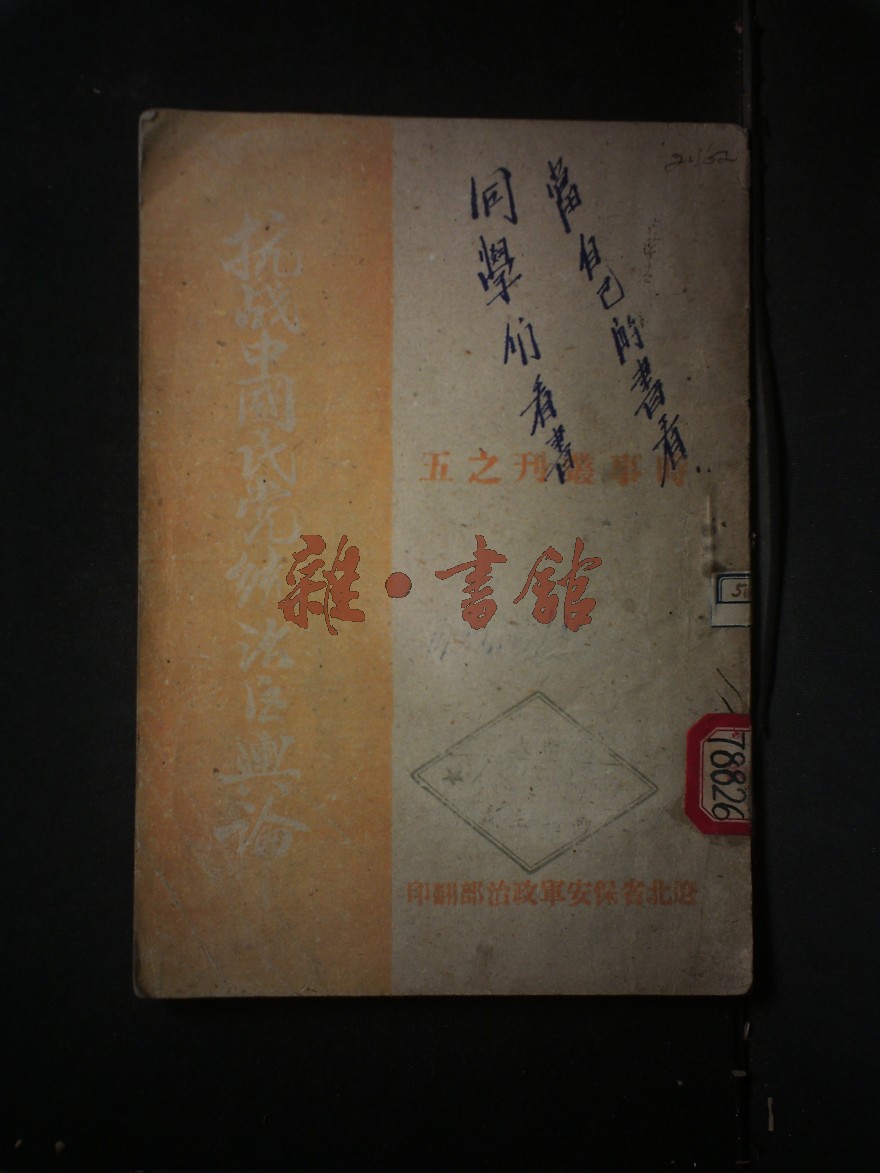 同學們看書
當自己的書看..
21/52
時事叢刊之五
抗战中國民党統治區輿論
雜·書館
78826
遼北省保安軍政治部翻印